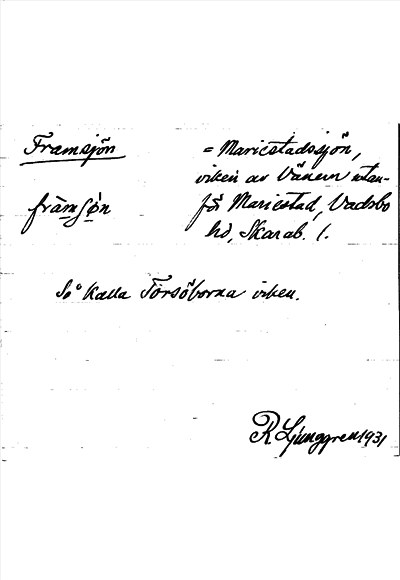 Framsjön
= Mariestadssjön,
viken av Vänern utan-
för Mariestad, Vadsbo
hd, Skarab. l.
fràmʃø̀n
Så kalla Torsöborna viken.
R Ljunggren 1931